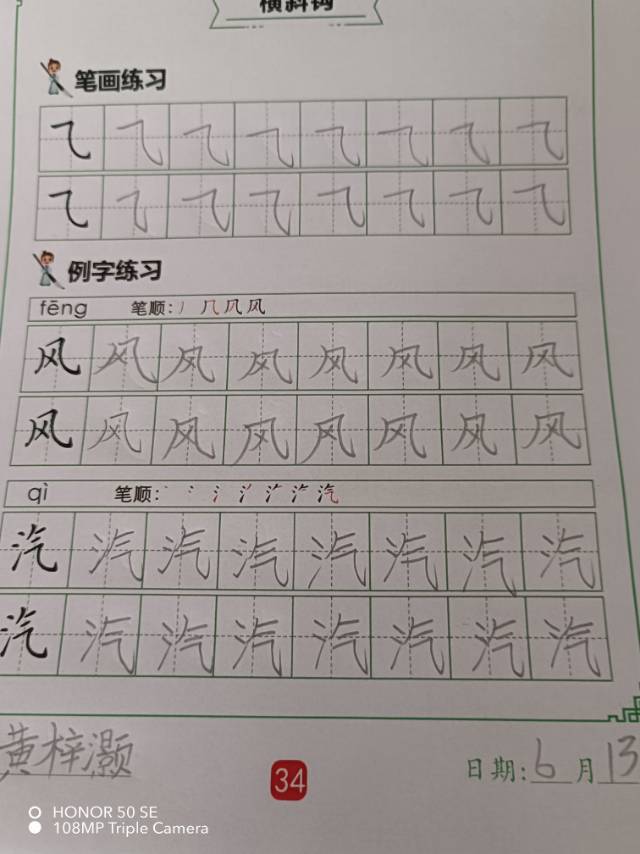 横斜钩
笔画练习
⺄ ⺄ ⺄ ⺄ ⺄ ⺄ ⺄ ⺄
⺄ ⺄ ⺄ ⺄ ⺄ ⺄ ⺄ ⺄
例字练习
fēng 笔顺: 丿 几 凨 风
风 风 风 风 风 风 风 风
风 风 风 风 风 风 风 风
qì 笔顺: 汽
汽 汽 汽 汽 汽 汽 汽 汽
汽 汽 汽 汽 汽 汽 汽 汽
黄梓灏
34
日期: 6 月 13
HONOR 50 SE
108MP Triple Camera